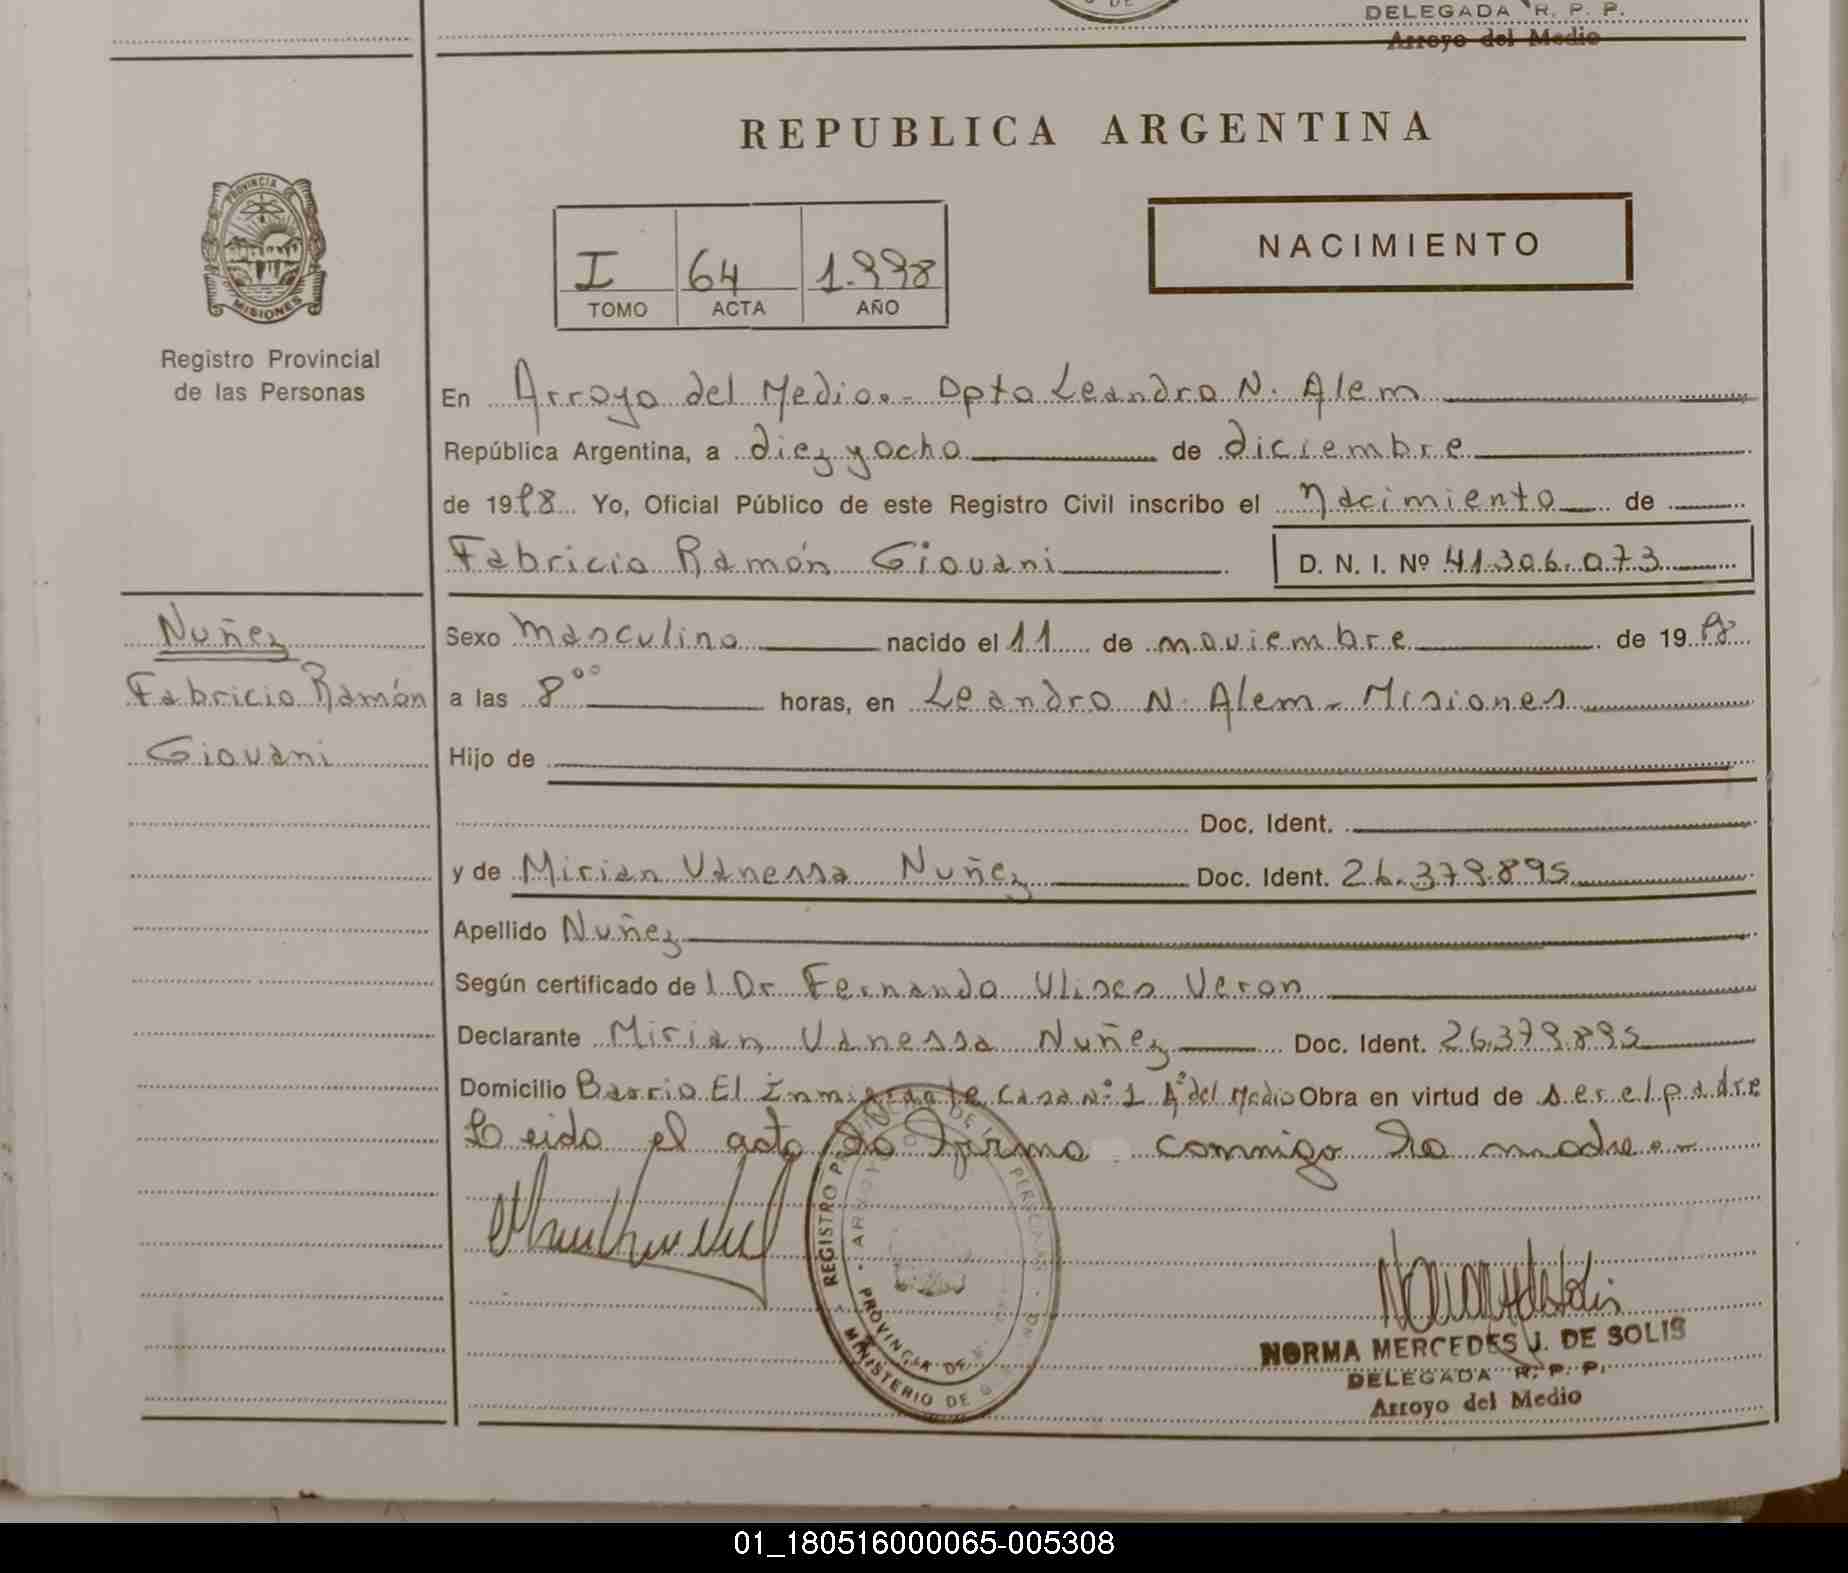 DE
DELEGADA R. P. P.
Arroyo del Medio
REPUBLICA ARGENTINA
PROVINCIA DE
MISIONES
Registro Provincial
de las Personas
NACIMIENTO
I 64 1.998
TOMO ACTA AÑO
En Arroyo del Medio.- Dpto Leandro N. Alem
República Argentina, a diez y ocho de diciembre
de 1998 Yo, Oficial Público de este Registro Civil inscribo el nacimiento de
Fabricio Ramón Giovani D. N. I. Nº 41.306.073
Nuñez
Fabricio Ramón
Giovani
Sexo masculino nacido el 11 de noviembre de 1998
a las 8⁰⁰ horas, en Leandro N. Alem - Misiones
Hijo de
Doc. Ident.
y de Mirian Vanessa Nuñez Doc. Ident. 26.379.895
Apellido Nuñez
Según certificado del Dr Fernando Ulises Veron
Declarante Mirian Vanessa Nuñez Doc. Ident. 26.379.895
Domicilio Barrio El Inmigrante Casa Nº 1 Aº del Medio Obra en virtud de ser el padre
Leida el acta la firma conmigo la madre.-
REGISTRO PROVINCIAL DE LAS PERSONAS
ARROYO
PROVINCIA DE
MINISTERIO DE G
NORMA MERCEDES J. DE SOLIS
DELEGADA R. P. P.
Arroyo del Medio
01_180516000065-005308